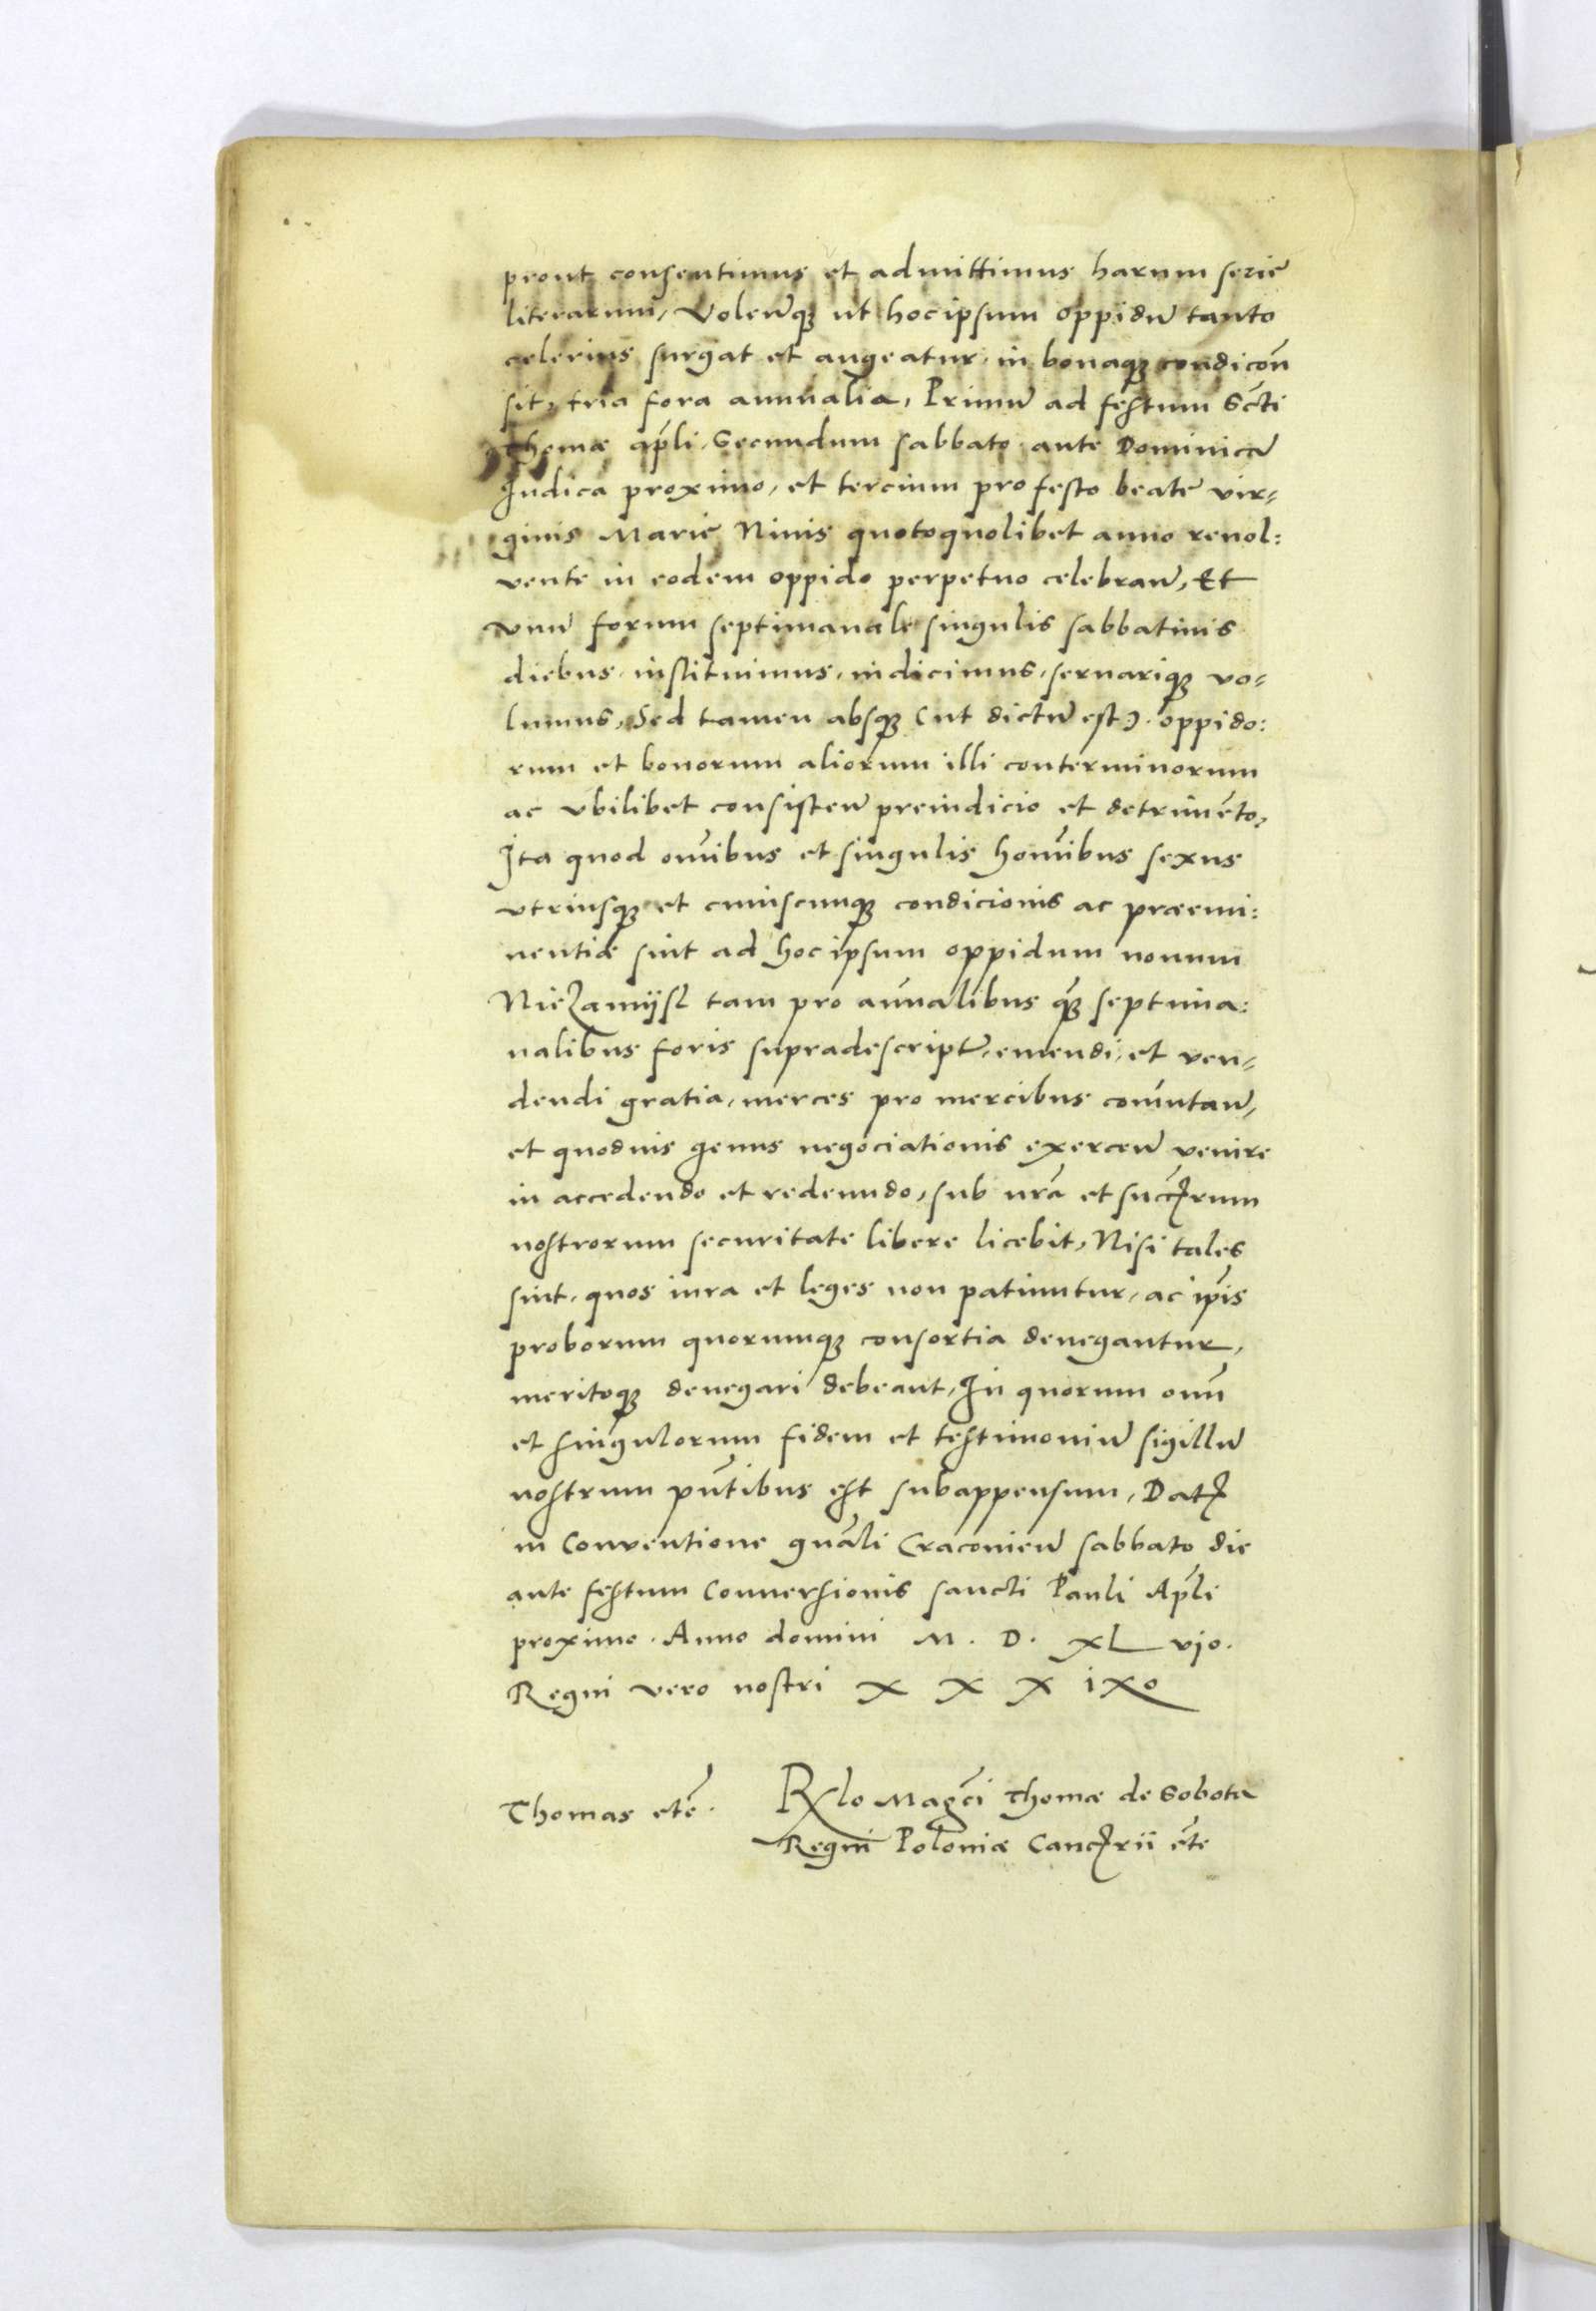 prout consentimus et admittimus harum serie
literarum, Volen̄q₃ ut hoc ipsum oppidū tanto
celerius surgat et augeatur, in bonaq₃ condicōn
sit, tria fora annualia, Primū ad festum Scti
Thomæ apli. Secundum sabbato ante Dominicā
Iudica proximo, et tercium pro festo beate vir-
ginis Marie Nivis quotoquolibet anno revol:
vente in eodem oppido perpetuo celebran̄, Et
vnū forum septimanale singulis sabbatinis
diebus, instituimus, indicimus, servariq₃ vo-
lumus, Sed tamen absq₃ (ut dictū est). oppido:
rum et bonorum aliorum illi conterminorum
ac vbilibet consisten̄ preiudicio et detrimēto,
Ita quod om̄ibus et singulis hom̄ibus sexus
vtriusq₃ et cuiuscunq₃ condicionis ac præemi:
nentiæ sint ad hoc ipsum oppidum novum
Niezamijsl tam pro an̄ualibus q̄₃ septima:
nalibus foris supradescript̄, emendi, et ven-
dendi gratia, merces pro mercibus com̄utan̄,
et quodvis genus negociationis exercen̄ venire
in accedendo et redeundo, sub nr̄a et succꝝrum
nostrorum securitate libere licebit, Nisi tales
sint, quos iura et leges non patiuntur, ac ip̄is
proborum quorumq₃ consortia denegantur,
meritoq₃ denegari debeant, In quorum om̄
et singulorum fidem et testimoniū sigillū
nostrum pn̄tibus est subappensum, Datꝝ
in Conventione gnāli Cracovien̄ sabbato die
ante festum Conversionis sancti Pauli Apli
proximo. Anno domini M. D. XL vjo.
Regni vero nostri X X X iXo
Thomas etc̄.
Rlo Magc̄i Thomæ de Sobota
Regni Poloniæ Cancꝝrii etc̄